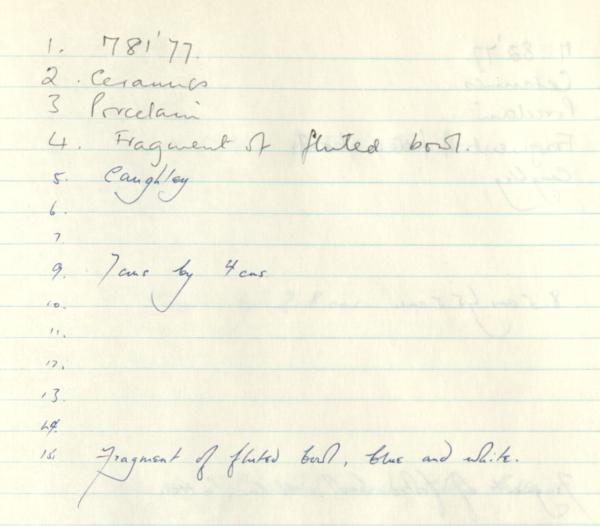 1. 781'77.
2. Ceramics
3 Porcelain
4. Fragment of fluted bowl.
5. Caughley
6.
7
9. 7cms by 4cms
10.
11.
12.
13.
14.
15. Fragment of fluted bowl, blue and white.